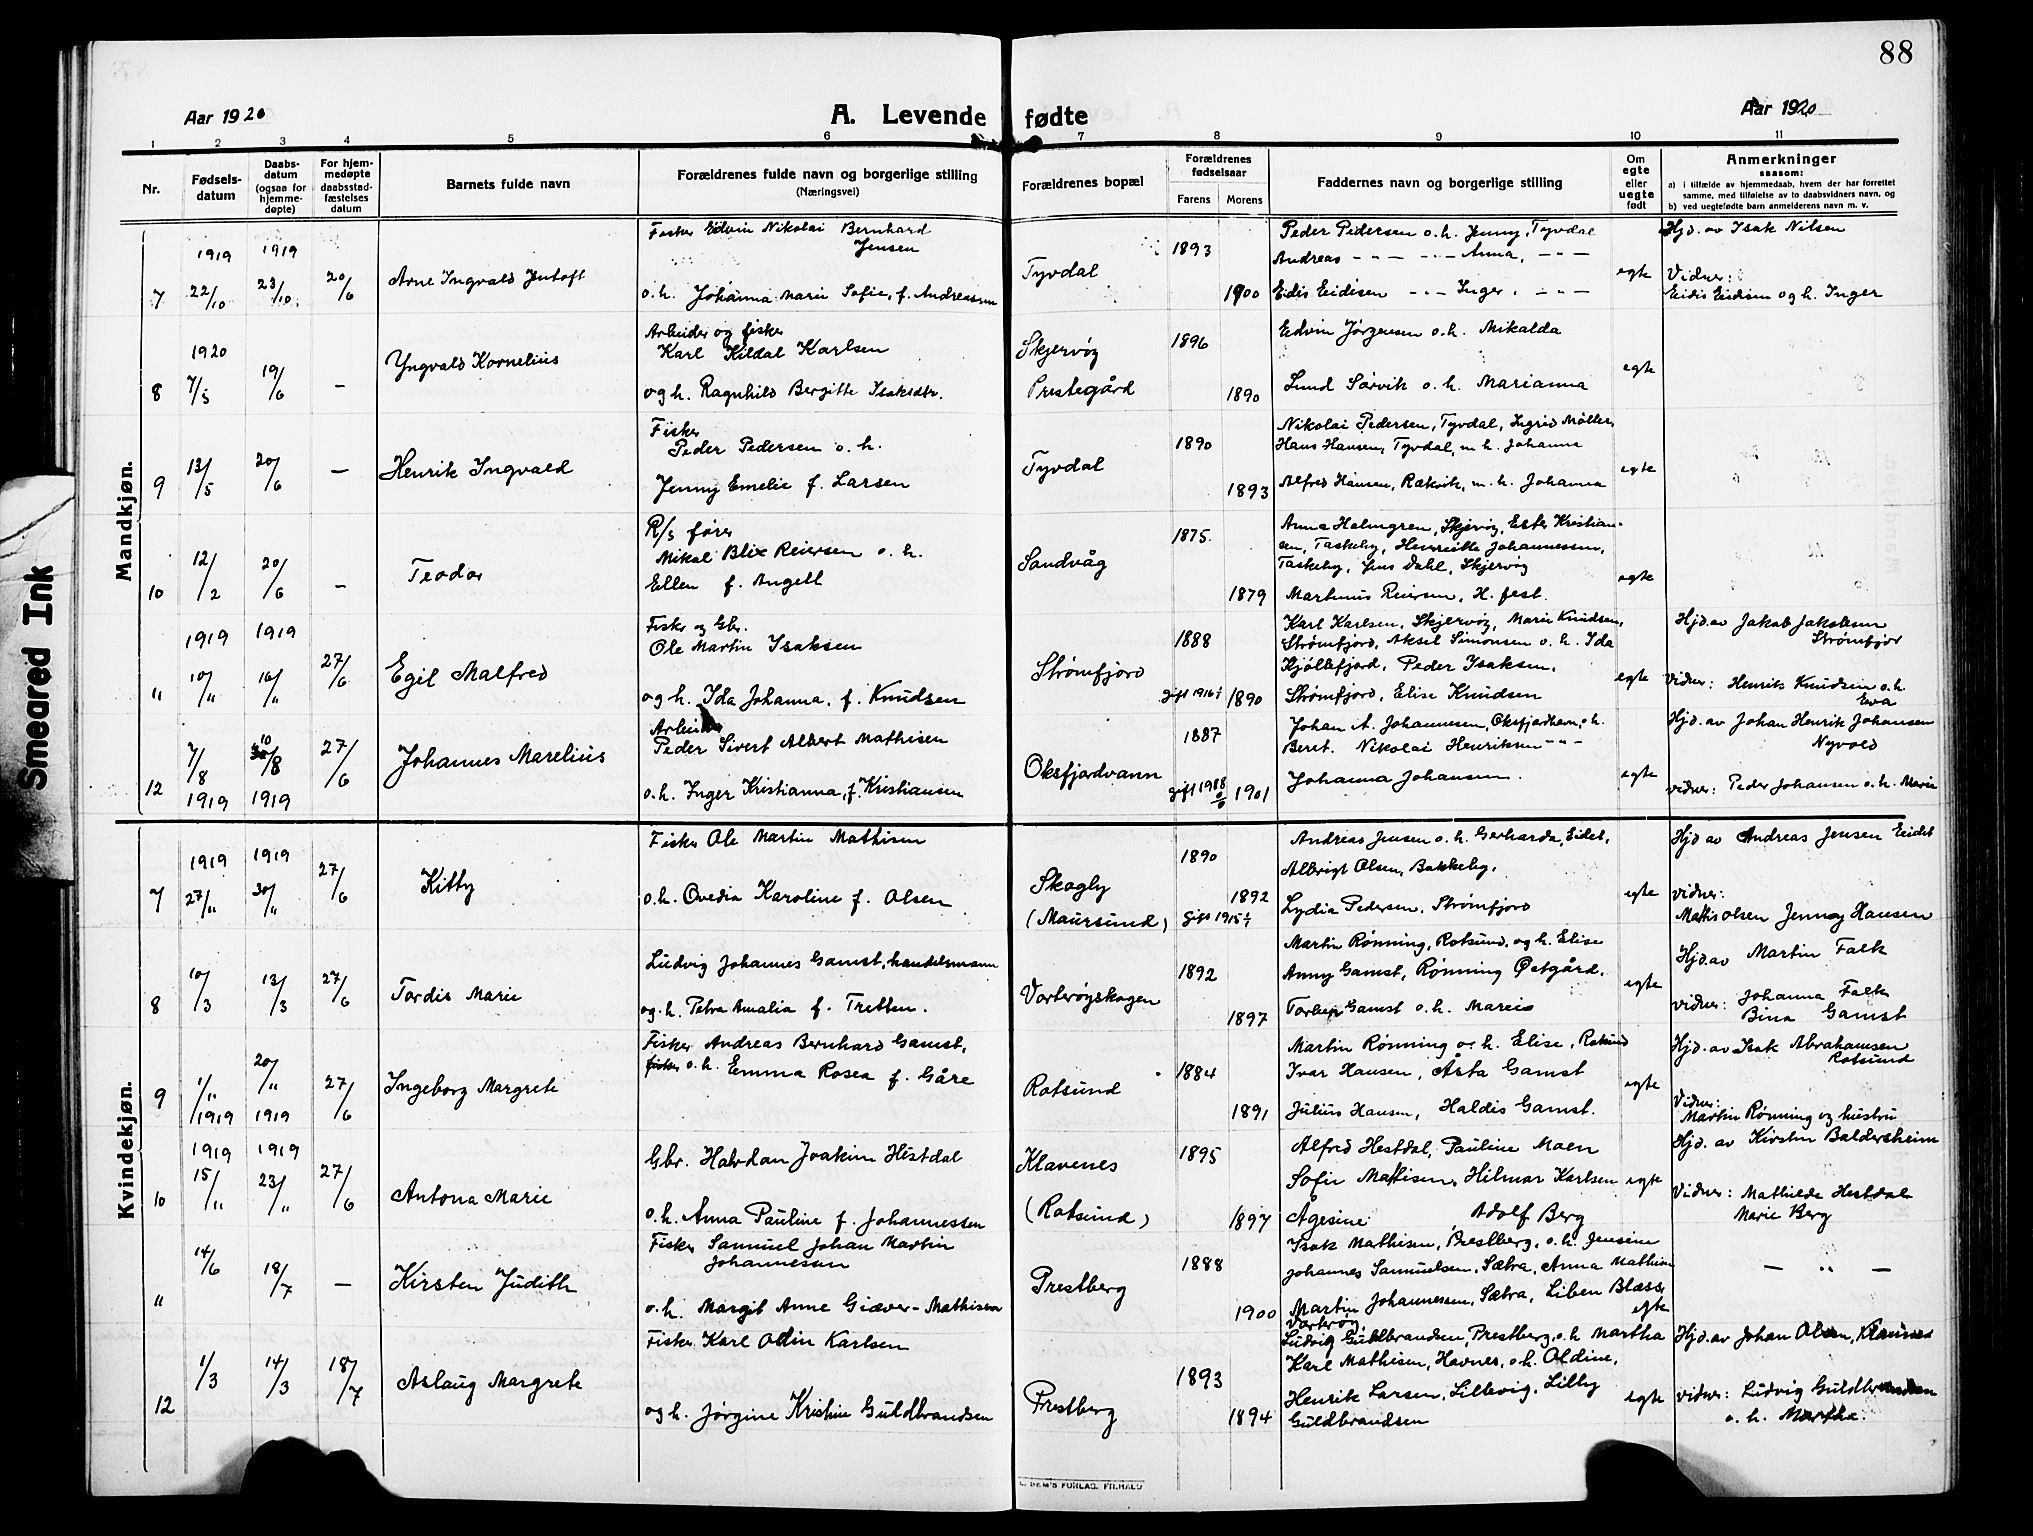 88
Aar 1920
A. Levende fødte
Aar 1920
1 2 3 4 5 6 7 8 9 10 11
Nr.
Fødsels-
datum
Daabs-
datum
(ogsaa for
hjemme-
døpte)
For hjem-
medøpte
daabsstad-
fæstelses
datum
Barnets fulde navn
Forældrenes fulde navn og borgerlige stilling
(Næringsvei)
Forældrenes bopæl
Forældrenes
fødselsaar
Farens Morens
Faddernes navn og borgerlige stilling
Om
egte
eller
uegte
født
Anmerkninger
saasom:
a) i tilfælde av hjemmedaab, hvem der har forrettet
samme, med tilføielse av to daabsvidners navn, og
b) ved uegtefødte barn anmelderens navn m. v.
Smeared Ink
Mandkjøn.
7
1919
22/10
1919
23/10
20/6
Arne Ingvald Jentoft
Fisker Edvin Nikolai Bernhard
Jensen
o.h. Johanna Marie Sofie, f. Andreassen
Tyvdal
1893
1900
Peder Pedersen o.h. Jenny, Tyvdal
Andreas -"- -"- Anna, -"-
Eidis Eidisen -"- Inger, -"-
egte
Hjd. av Isak Nilsen
Vidner:
Eidis Eidisen og h. Inger
8
1920
7/5
19/6
-
Yngvald Kornelius
Arbeider og fisker
Karl Kildal Karlsen
og h. Ragnhild Bergitte Isaksdtr.
Skjervøy
Prestegård
1896
1890
Edvin Jørgensen o.h. Mikalda
Lund Sørvik o.h. Marianna
egte
9
13/5
20/6
-
Henrik Ingvald
Fisker
Peder Pedersen o.h.
Jenny Emelie f. Larsen
Tyvdal
1890
1893
Nikolai Pedersen, Tyvdal, Ingrid Møller,
Hans Hansen, Tyvdal, m.h. Johanna
Alfred Hansen, Rakvik, m.h. Johanna
egte
10
12/2
20/6
-
Teodor
R/s fører
Mikal Blix Reiersen o.h.
Ellen f. Angell
Sandvåg
1875.
1879
Anna Halmgren, Skjervøy, Ester Kristian-
sen, Taskeby, Henriette Johannessen,
Taskeby, Jens Dahl, Skjervøy
Marthinus Reiersen, H. fest.
egte
"
1919
10/"
1919
16/"
27/6
Egil Malfred
Fisker og Gbr.
Ole Martin Isaksen
og h. Ida Johanna, f. Knudsen
Strømfjord
1888
gift 1916
1890
Karl Karlsen, Skjervøy, Marie Knudsen,
Strømfjord, Aksel Simonsen o.h. Ida
Kjøllefjord, Peder Isaksen,
Strømfjord, Elise Knudsen
egte
Hjd. av Jakob Jakobsen
Strømfjor
Vidner: Henrik Knudsen o.h.
Eva
12
7/8
1919
10/8
1919
27/6
Johannes Marelius
Arbeider
Peder Sivert Albert Mathisen
o.h. Inger Kristianna, f. Kristiansen
Oksfjordvann
1887
1901
Johan A. Johannesen, Oksfjordham, o.h.
Beret. Nikolai Henriksen -"-
Johanna Johansen.
egte
Hjd. av Johan Henrik Johansen
Nyvold
vidner: Peder Johansen o.h. Marie
Kvindekjøn.
7
1919
27/"
1919
30/"
27/6
Kitty
Fisker Ole Martin Mathisen
o.h. Ovedia Karoline f. Olsen
Skogly
(Maursund)
1890
1892
gift 1915
Andreas Jensen o.h. Gerharda, Eidet,
Albrigt Olsen, Bakkeby,
Lydia Pedersen, Strømfjord
egte
Hjd av Andreas Jensen Eidet
vidner:
Mathis Olsen Jenny Hansen
8
10/3
13/3
27/6
Tordis Marie
Ludvig Johannes Gamst, handelsmann
og h. Petra Amalia f. Tretten.
Vorterøyskagen
1892
1897
Martin Rønning, Rotsund, og h. Elise
Anny Gamst, Rønning Østgård,
Torleif Gamst o.h. Mareis
egte
Hjd. av Martin Falk
vidner: Johanna Falk
Bina Gamst
9
1/"
1919
20/"
1919
27/6
Ingeborg Margrete
Fisker Andreas Bernhard Gamst,
fisker o.h. Emma Rosea f. Gåre
Rotsund
1884
1891
Martin Rønning o.h. Elise, Rotsund
Ivar Hansen, Åsta Gamst
Julius Hansen, Haldis Gamst.
egte
Hjd. av Isak Abrahamsen
Rotsund
Vidner:
Martin Rønning og hustru
10
1919
15/"
1919
23/"
27/6
Antona Marie
Gbr. Halvdan Joakim Hestdal
o.h. Anna Pauline f. Johannessen
Klavenes
(Rotsund)
1895
1897
Alfred Hestdal, Pauline Moen
Sofie Mathisen, Hilmar Karlsen
Ågesine Adolf Berg
egte
Hjd. av Kirsten Baldersheim
Vidner: Mathilde Hestdal
Marie Berg
"
14/6
18/7
-
Kirsten Judith
Fisker Samuel Johan Martin
Johannessen
o.h. Margit Anne Giæver-Mathisen
Prestberg
1888
1900
Isak Mathisen, Prestberg, o.h. Jensine
Johannes Samuelsen, Sætra, Anna Mathisen
Martin Johannessen, Sætra, Liben Blæss,
Vorterøy,
egte
- " -
12
1/3
14/3
18/7
Aslaug Margrete
Fisker Karl Odin Karlsen
og h. Jørgine Kristine Guldbrandsen
Prestberg
1893
1894
Ludvig Guldbrandsen, Prestberg, o.h. Martha
Karl Mathisen, Havnes, o.h. Oldine,
Henrik Larsen, Lillevig, Lilly
Guldbrandsen
egte
Hjd. av Johan Olsen,
vidner: Ludvig Guldbrandsen
o.h. Martha.
FORLAG. FR.HALD